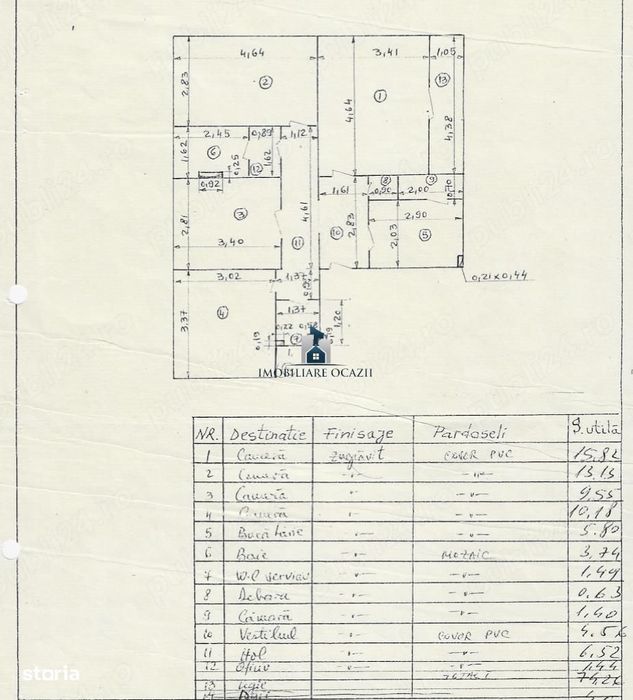 4,64
3,41
1,05
2,83
2
1
13
4,64
4,38
2,45
0,89
1,12
6
1,62
0,25
12
1,62
0,92
1,61
8
0,90
9
2,00
0,70
2,81
3
4,61
3,40
11
10
2,83
2,03
2,90
5
3,02
1,37
0,21x0,44
4
1,37
3,37
1,20
0,22
0,19
7
0,19
IMOBILIARE OCAZII
NR. Destinatie Finisaje Pardoseli S.utilă
1 Cameră Zugrăvit COVOR PVC 15,82
2 Cameră -"- -"- 13,13
3 Cameră -"- -"- 9,55
4 Cameră -"- -"- 10,18
5 Bucătărie -"- -"- 5,80
6 Baie -"- MOZAIC 3,74
7 W.C serviciu -"- -"- 1,49
8 Debara -"- -"- 0,63
9 Cămară -"- -"- 1,40
10 Vestibul -"- COVOR PVC 4,56
11 Hol -"- -"- 6,52
12 Oficiu -"- -"- 1,44
TOTAL 74,26
13 Logie
14
storia